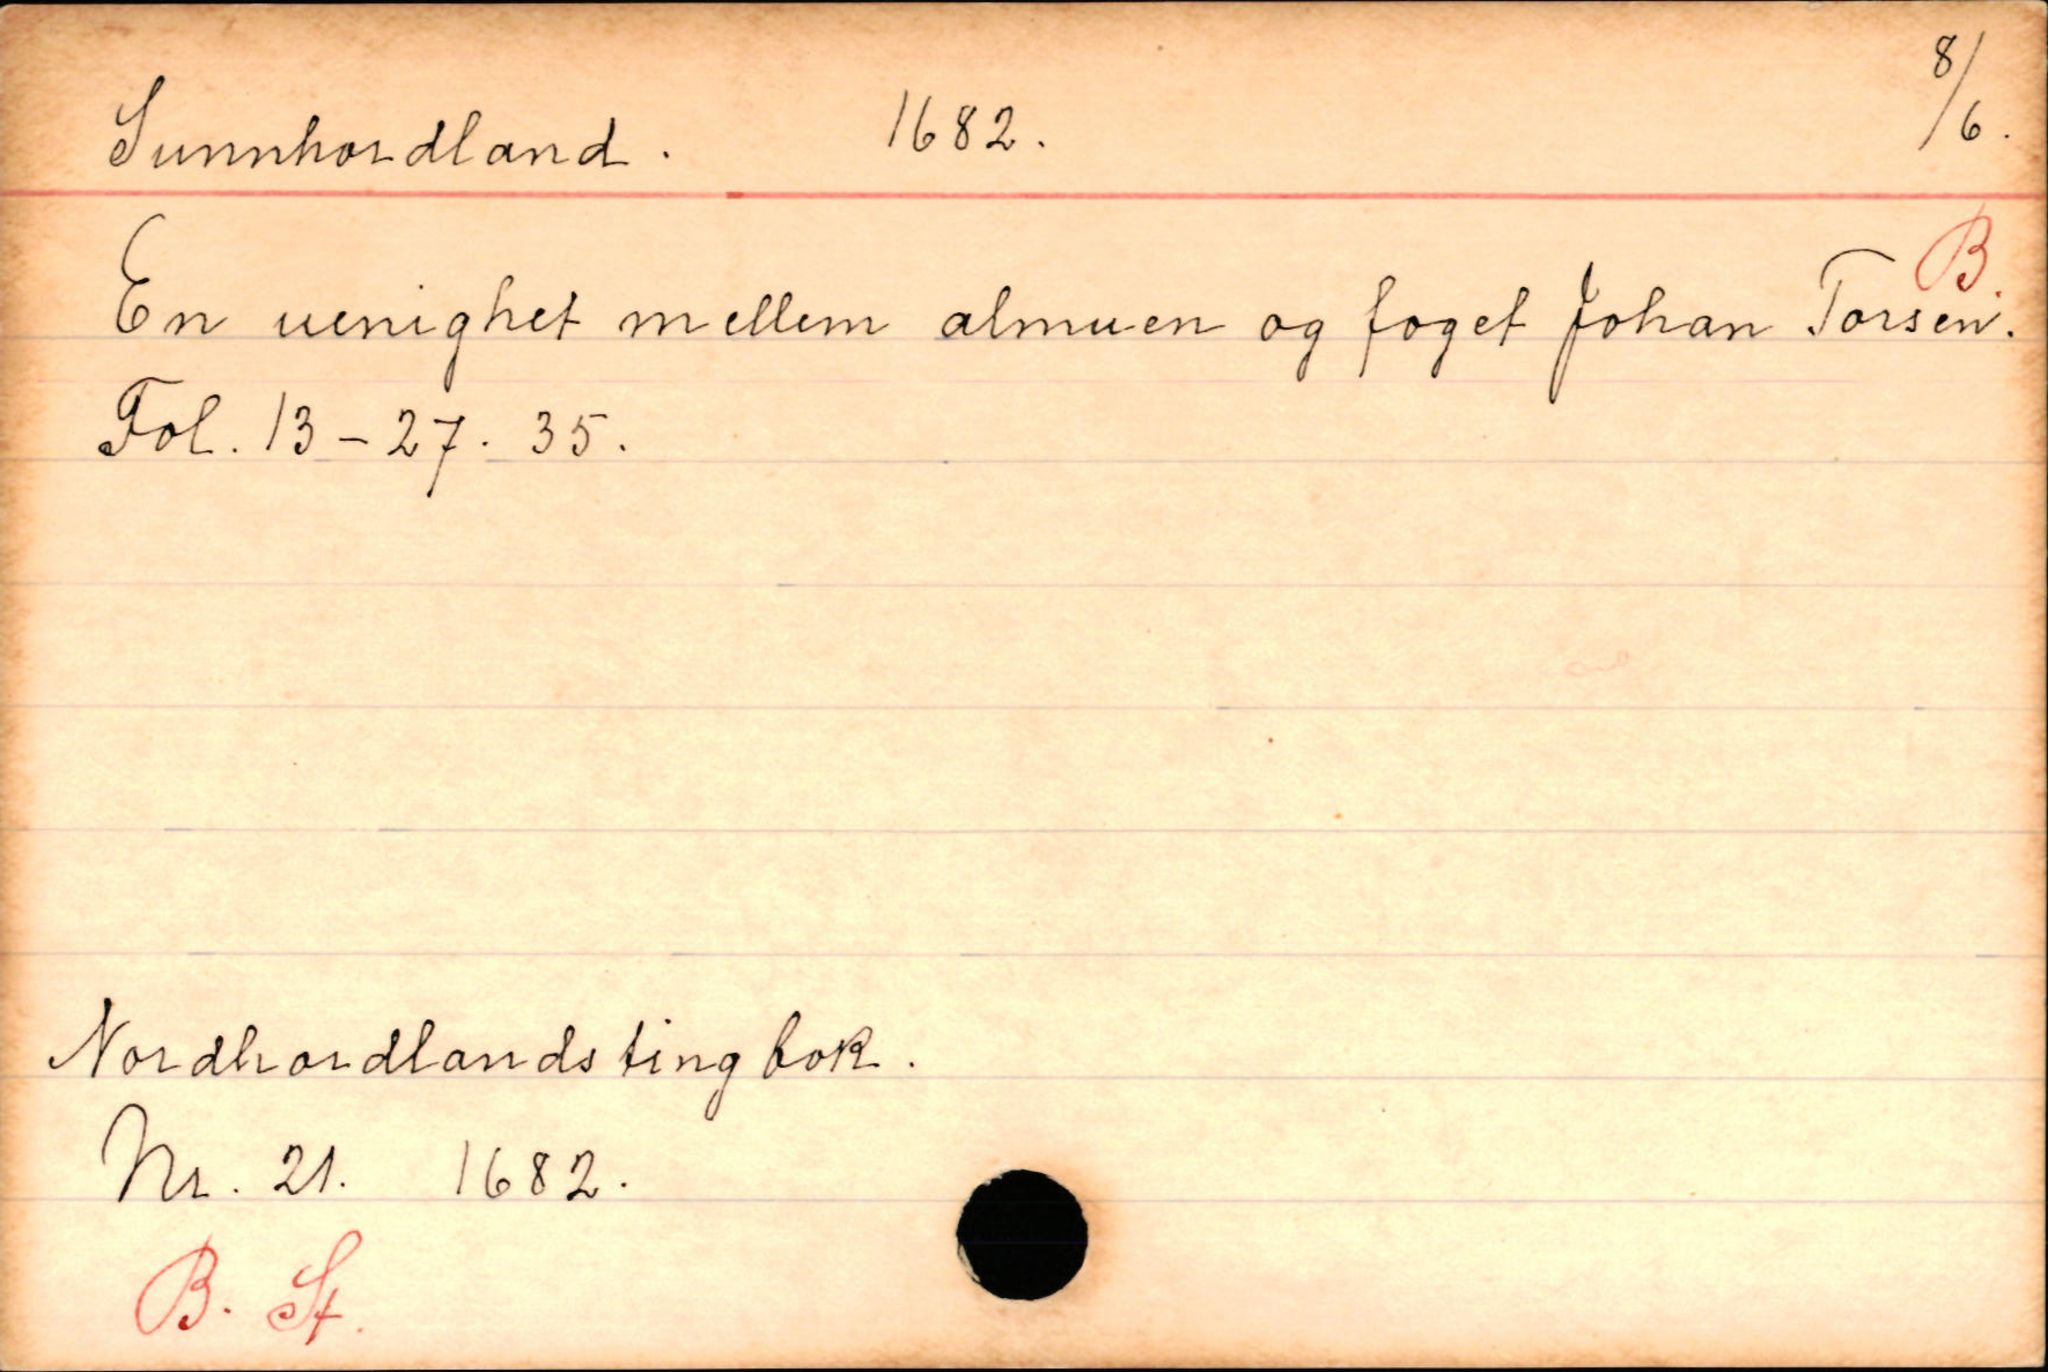 Sunnhordland. 1682. 8/6.
B.
En uenighet mellem almuen og foget Johan Torsen.
Fol. 13-27. 35.
Nordhordlands tingbok.
Nr. 21. 1682.
B. St.